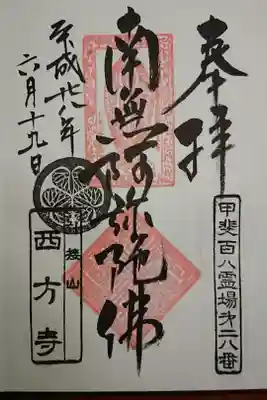 奉拝
甲斐百八霊場㐧二八番
南無阿弥陀佛
平成廿八年
六月十九日
西方寺